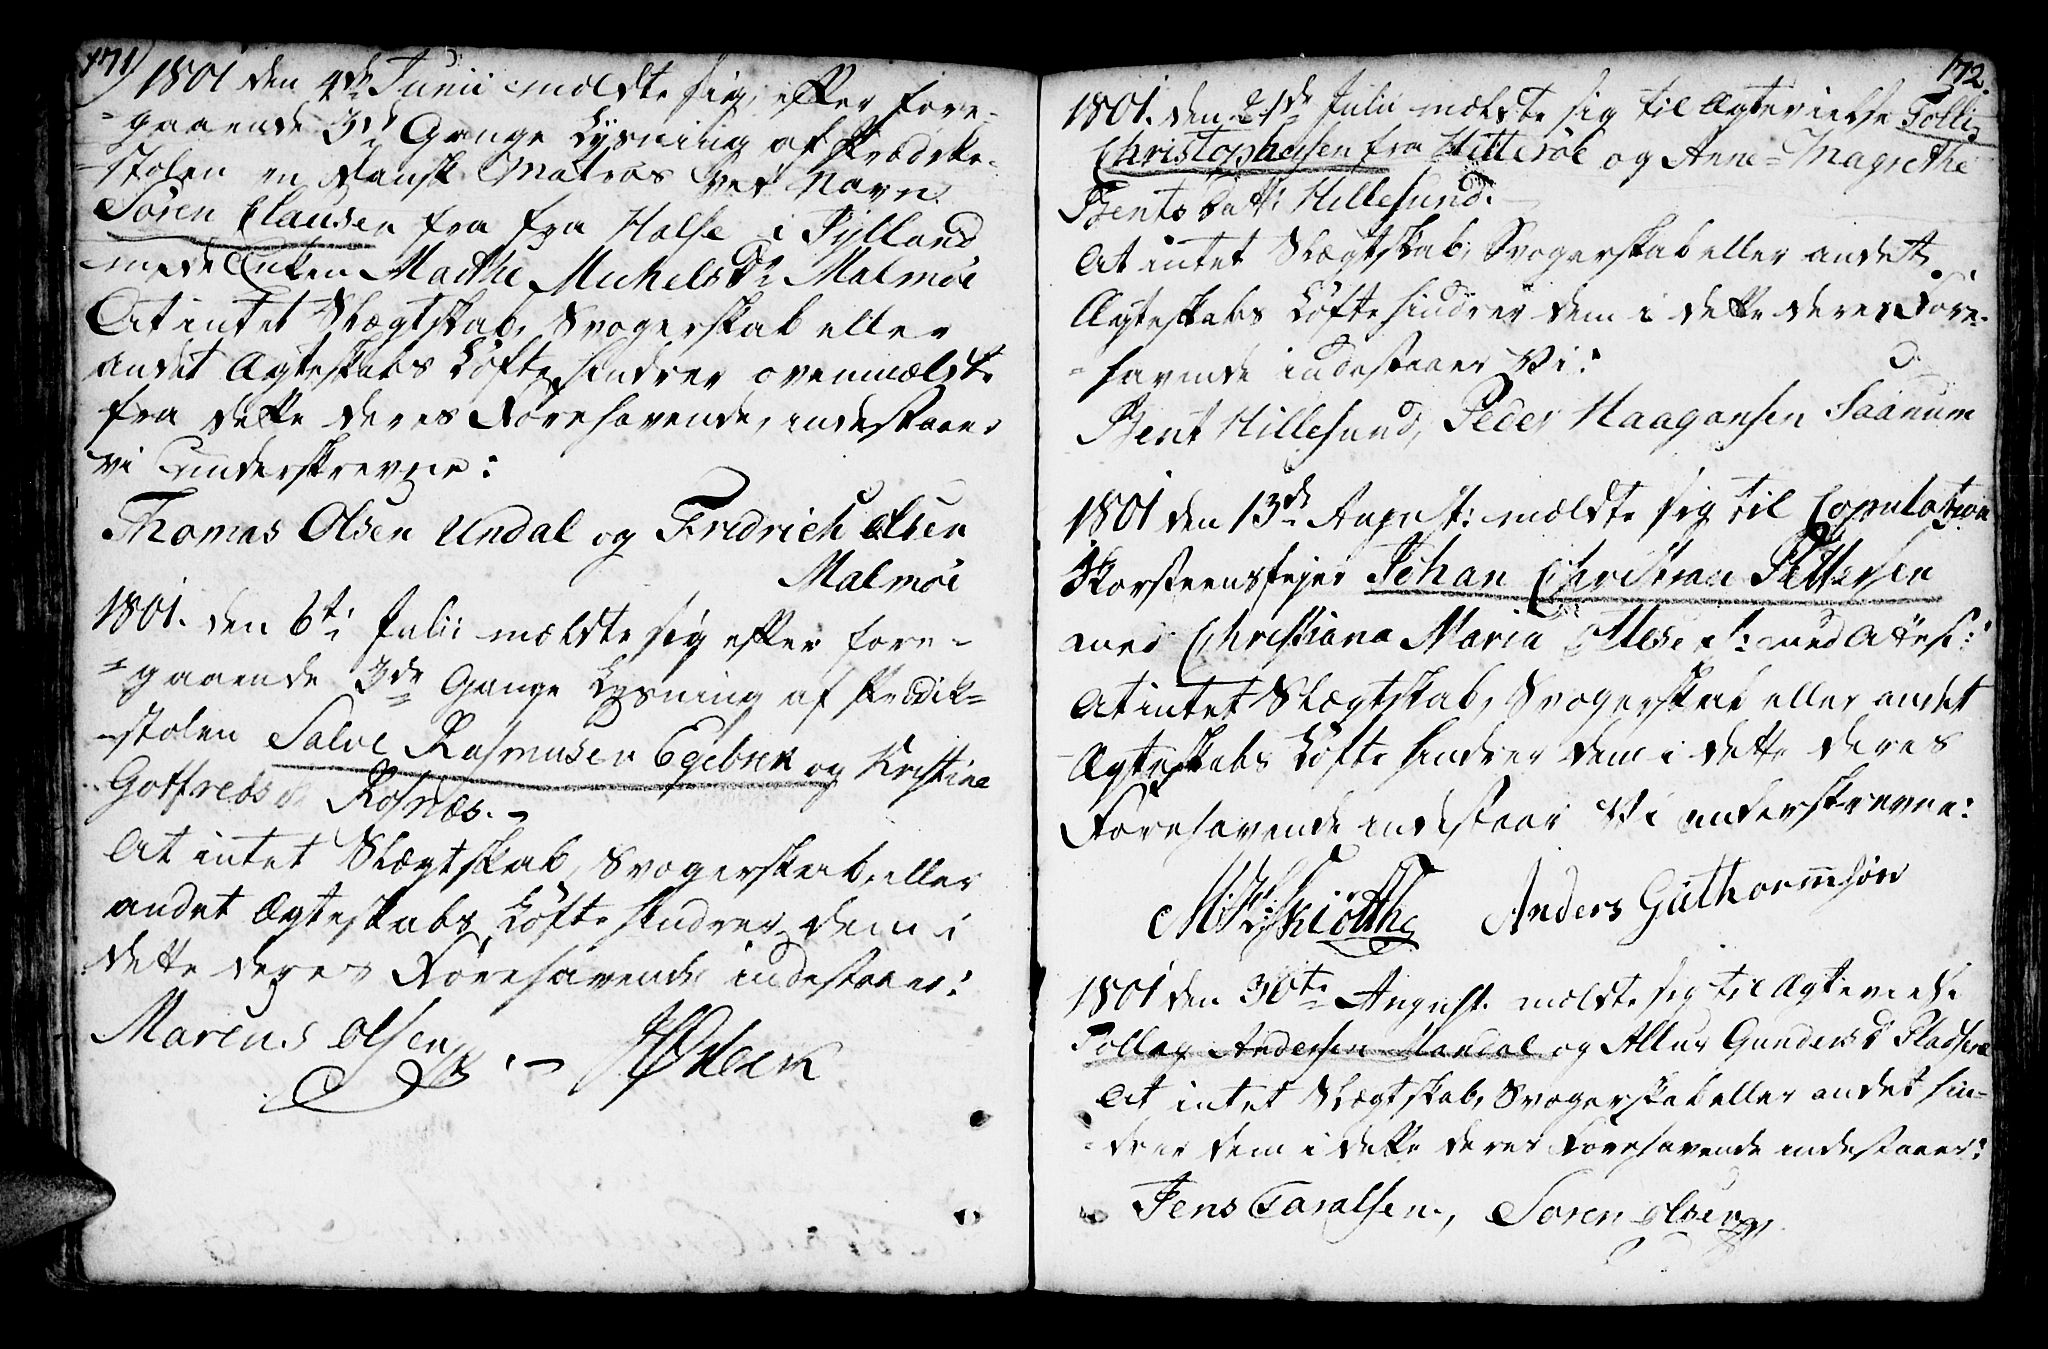 171)
1801 den 4de Junii meldte sig, efter fore-
-gaaende 3de Gange Lysning af Prædike-
-stolen en Dansk Matros ved Navn
Søren Clausen fra fra Halse i Jylland
med Enken Marthe Michels Dr Malmøe
At intet Slægtskab, Svogerskab eller
andet Ægteskabs Løfte hindrer ovenmældte
fra dette deres Forehavende, indestaaer
vi Underskrevne:
Thomas Olsen Undal og Fridrich Olsen
Malmøe
1801. den 6te Julii mældte sig efter fore-
-gaaende 3de Gange Lysning af Prædik-
-stolen Salve Rasmusen Egebek og Kristine
Gotfredsdr Rosnæs.-
At intet Slægtskab, Svogerskab, eller
andet Ægteskabs Løfte hindrer dem i
dette deres Forehavende indestaaer:
Marcus Olsen
172.
1801. den 21de Julii mældte sig til Ægtevielse Tollis
Christophersen fra Hitterøe og Anne-Magrethe
Bentsdatt: Hillesund.
At intet Slægtskab, Svogerskab eller andet
Ægteskabs Løfte hindrer dem i dette deres Fore-
-havende indestaaer Vi:
Bent Hillesund, Peder Haagansen Saanum
1801 den 13de August: mældte sig til Copulation
Skorsteensfejer Johan Christian Pettersen
med Christiana Maria
At intet Slægtskab, Svogerskab eller andet
Ægteskabs Løfte hindrer dem i dette deres
Forehavende indestaar Vi underskrevne:
Skiötthe Anders Guthormsön
1801 den 30te August mældte sig til Ægtevielse
Tollag Andersen Mandal og Allus Gundersdr Pladsene
At intet Slægtskab, Svogerskab eller andet hin-
-drer dem i dette deres Forehavende indestaaer:
Jens Taralsen, Søren Olsen